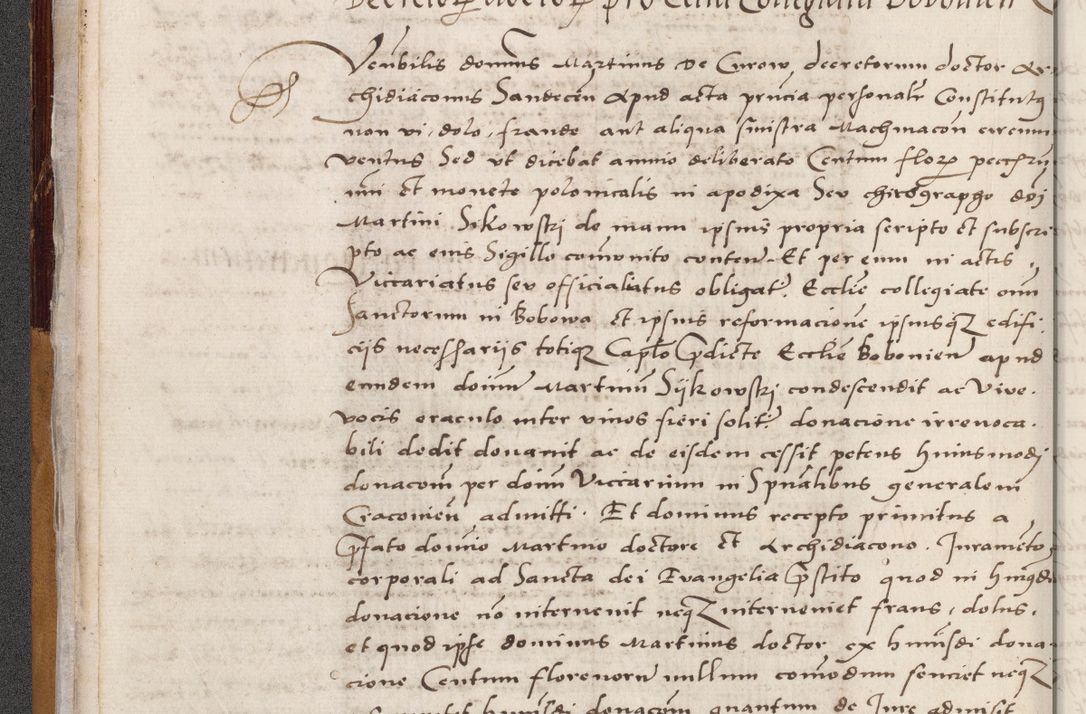 Decretorum doctor pro Ecclia Collegiata Bobovien
Venerabilis dominus Martinus de Curow, decretorum doctor Ar
chidiaconus Sandecen̄ Apud acta pn̄cia personalr̄ Constitutq
non vi, dolo, fraude aut aliqua sinistra Machinacōn circum
ventus Sed ut dicebat animo deliberato Centum flor pecc
ni et monete polonicalis in apodixa Seu chirographo dn̄i
Martini Sikowski de manu ipsius propria scripto et subscri
pto ac eius Sigillo com̄unito conten̄. Et per eum in actis
Viccariatus seu officialiatus obligat. Ecclie collegiate om̄
Sanctorum in Bobowa et ipsius reformacione ipsiusq edifi
cijs necessarijs totiq Caplo p̄dicte Ecclie Bobovien apud
eundem dom̄ Martinum Sijkowskj condescendit ac Vive
vocis oraculo inter vivos fieri solit donacione irrevoca
bili dedit donavit ac de eisdem cessit petens huiusmodj
donacom̄ per dom̄ Viccarium in Spualibus generalem
Cracovien̄ admitti. Et dominus recepto primitus a
p̄fato domino Martino doctore et Archidiacono. Juramēto
corporali ad Sancta dei Evangelia p̄stito quod in
donacione nō intervenit neq interveniet fraus, dolus,
et quod ipse dominus Martinus doctor ex huiusdi dona
cione Centum florenorū nullum com̄odum senciet neq
huiusdi donacom̄ quantum de Jure admisit